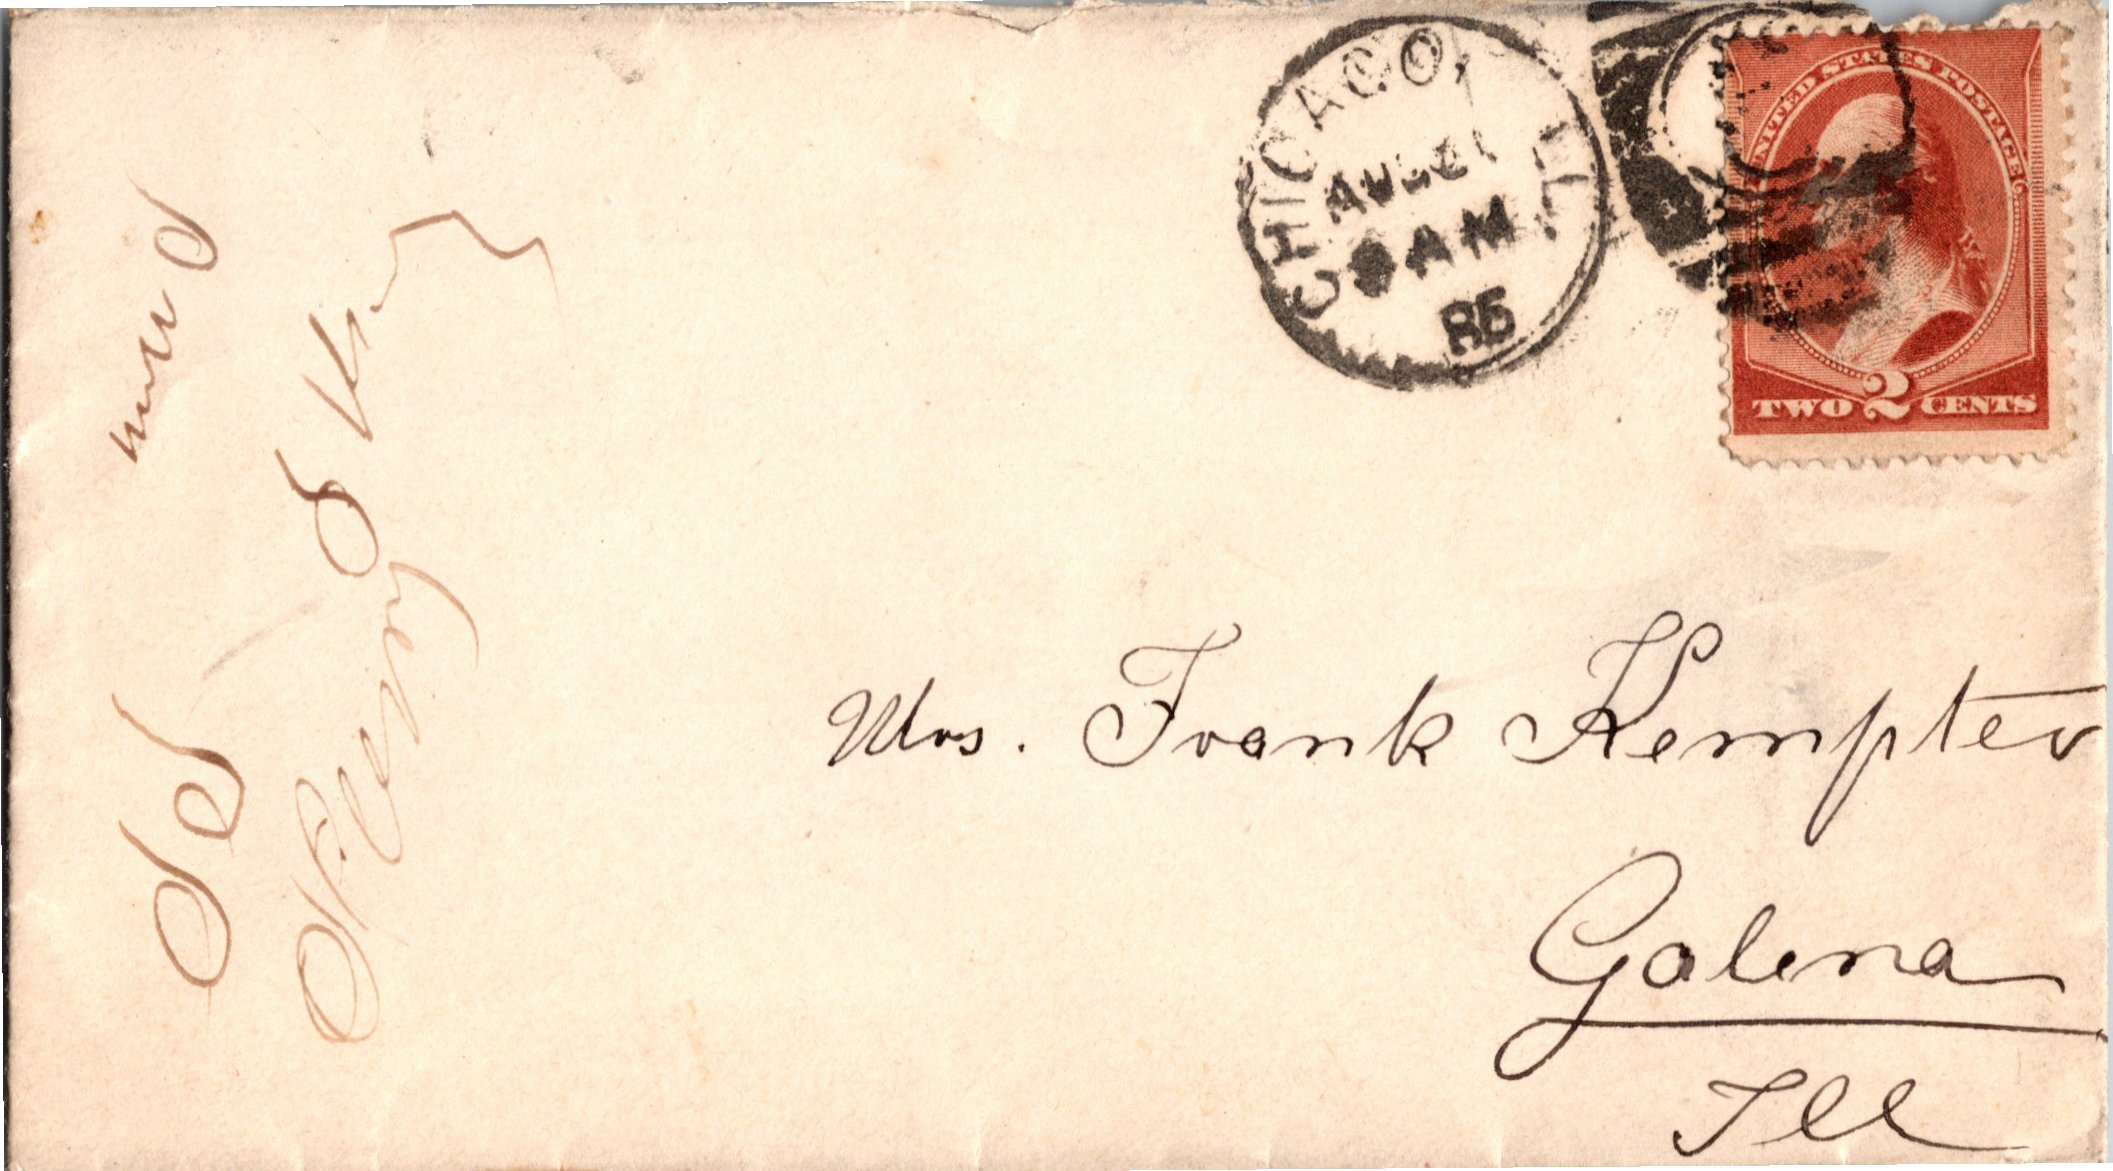 CHICAGO, ILL.
AUG 21
8 AM
85
UNITED STATES POSTAGE
TWO 2 CENTS
Mrs. Frank Kempter
Galena
Ill